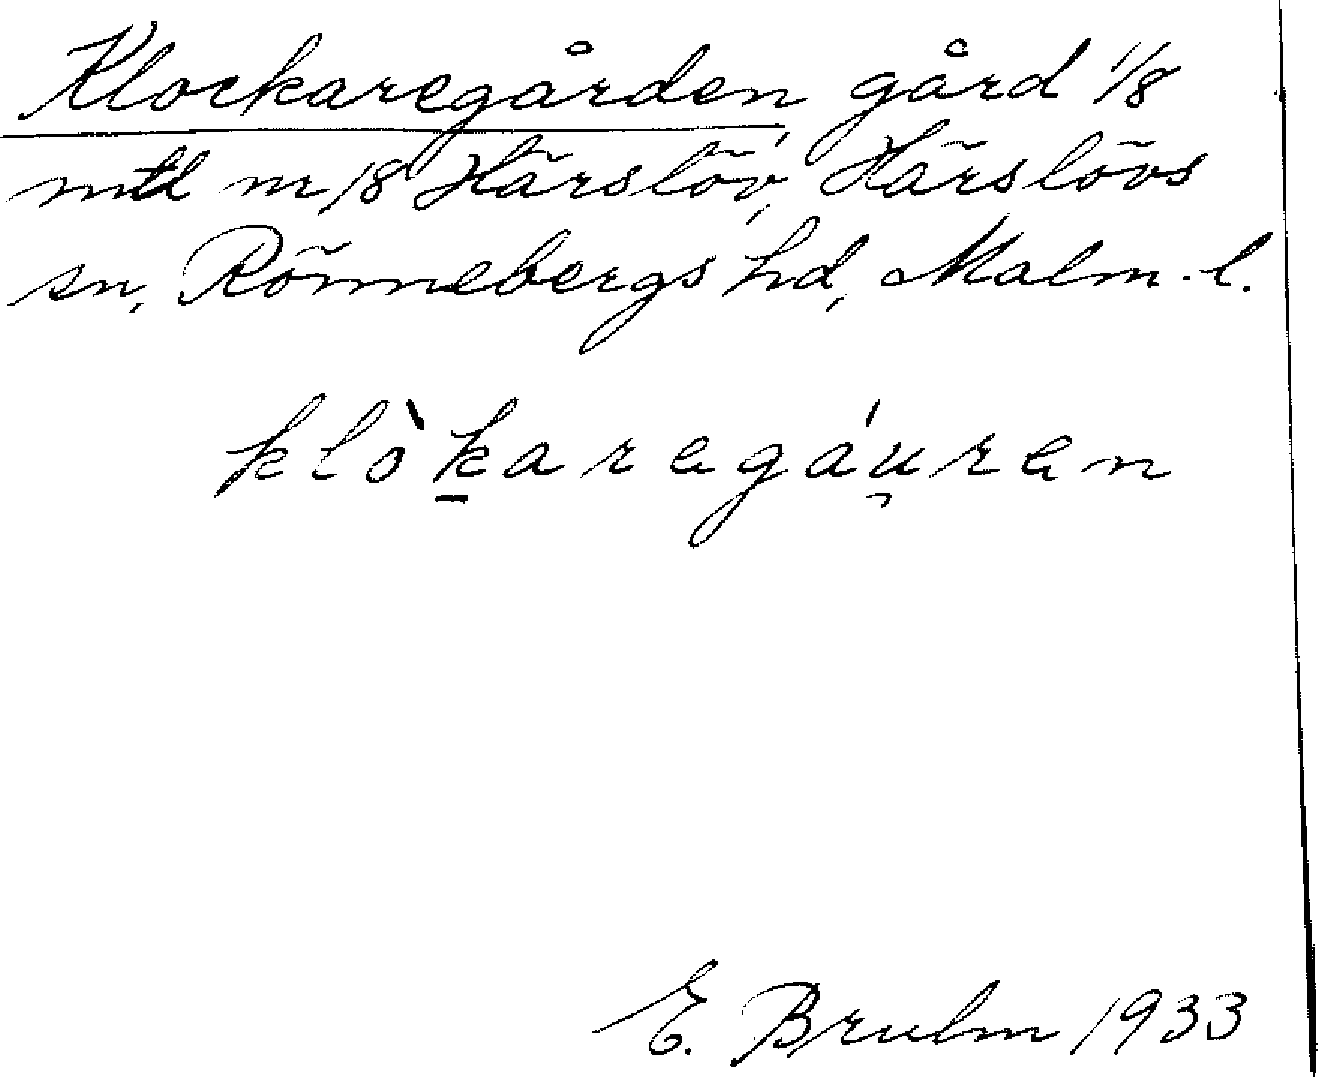 Klockaregården, gård 1/8
mtl nr 18 Härslöv, Härslövs
sn, Rönnebergs hd, Malm. l.
klòkaregáu̯ren
E. Bruhn 1933